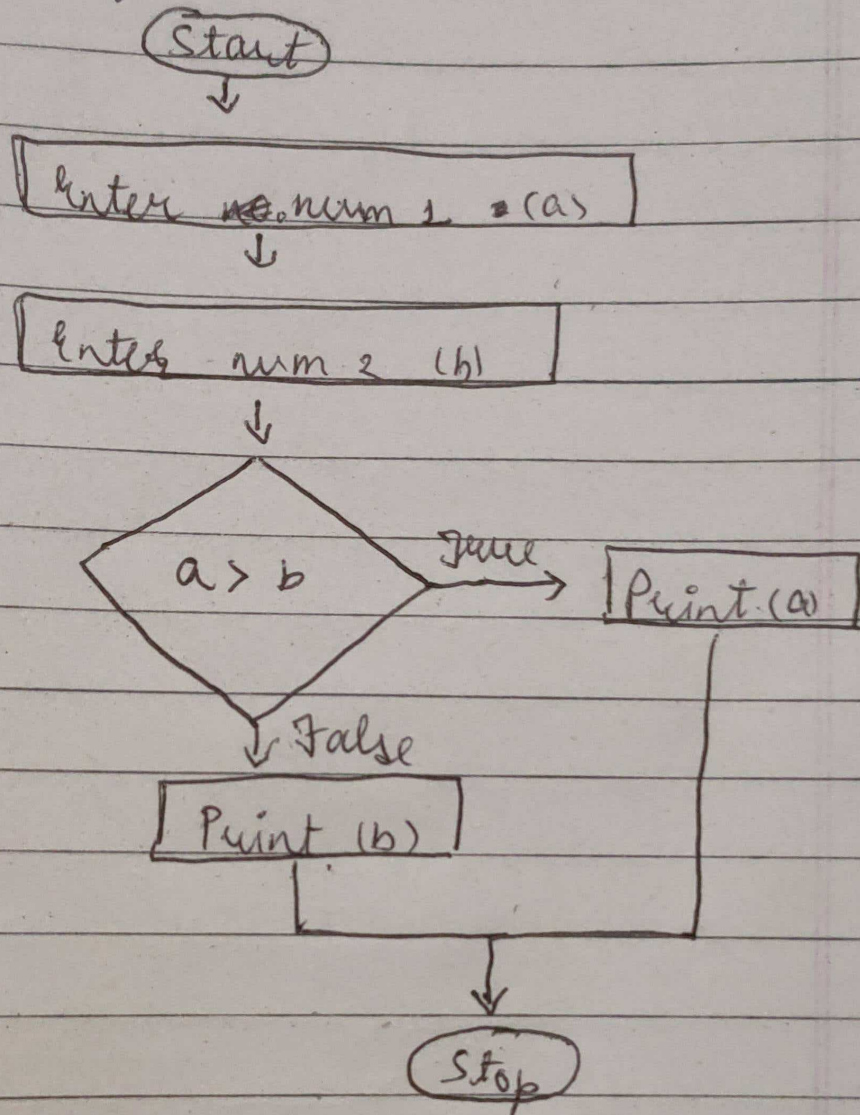 Start
Enter num 1 (a)
Enter num 2 (b)
a > b
True
Print (a)
False
Print (b)
Stop